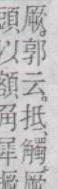 厥。郭云。抵、觸。
頭以額角犀